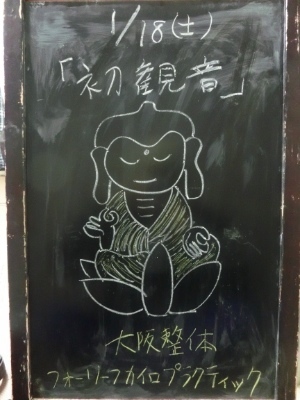 1/18(土)
「初観音」
大阪整体
フォーリーフカイロプラクティック